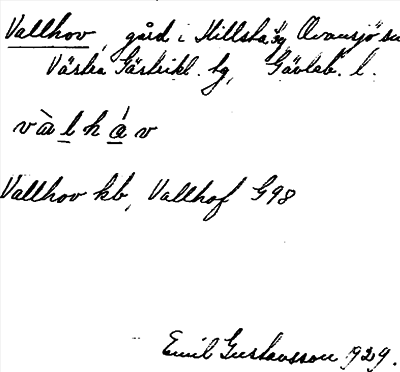 Vallhov, gård i Hillsta by Ovansjö sn
Västra Gästrikl. tg, Gävleb. l.
vàlháv
Vallhov kb, Vallhof G98
Emil Gustavsson 1929.